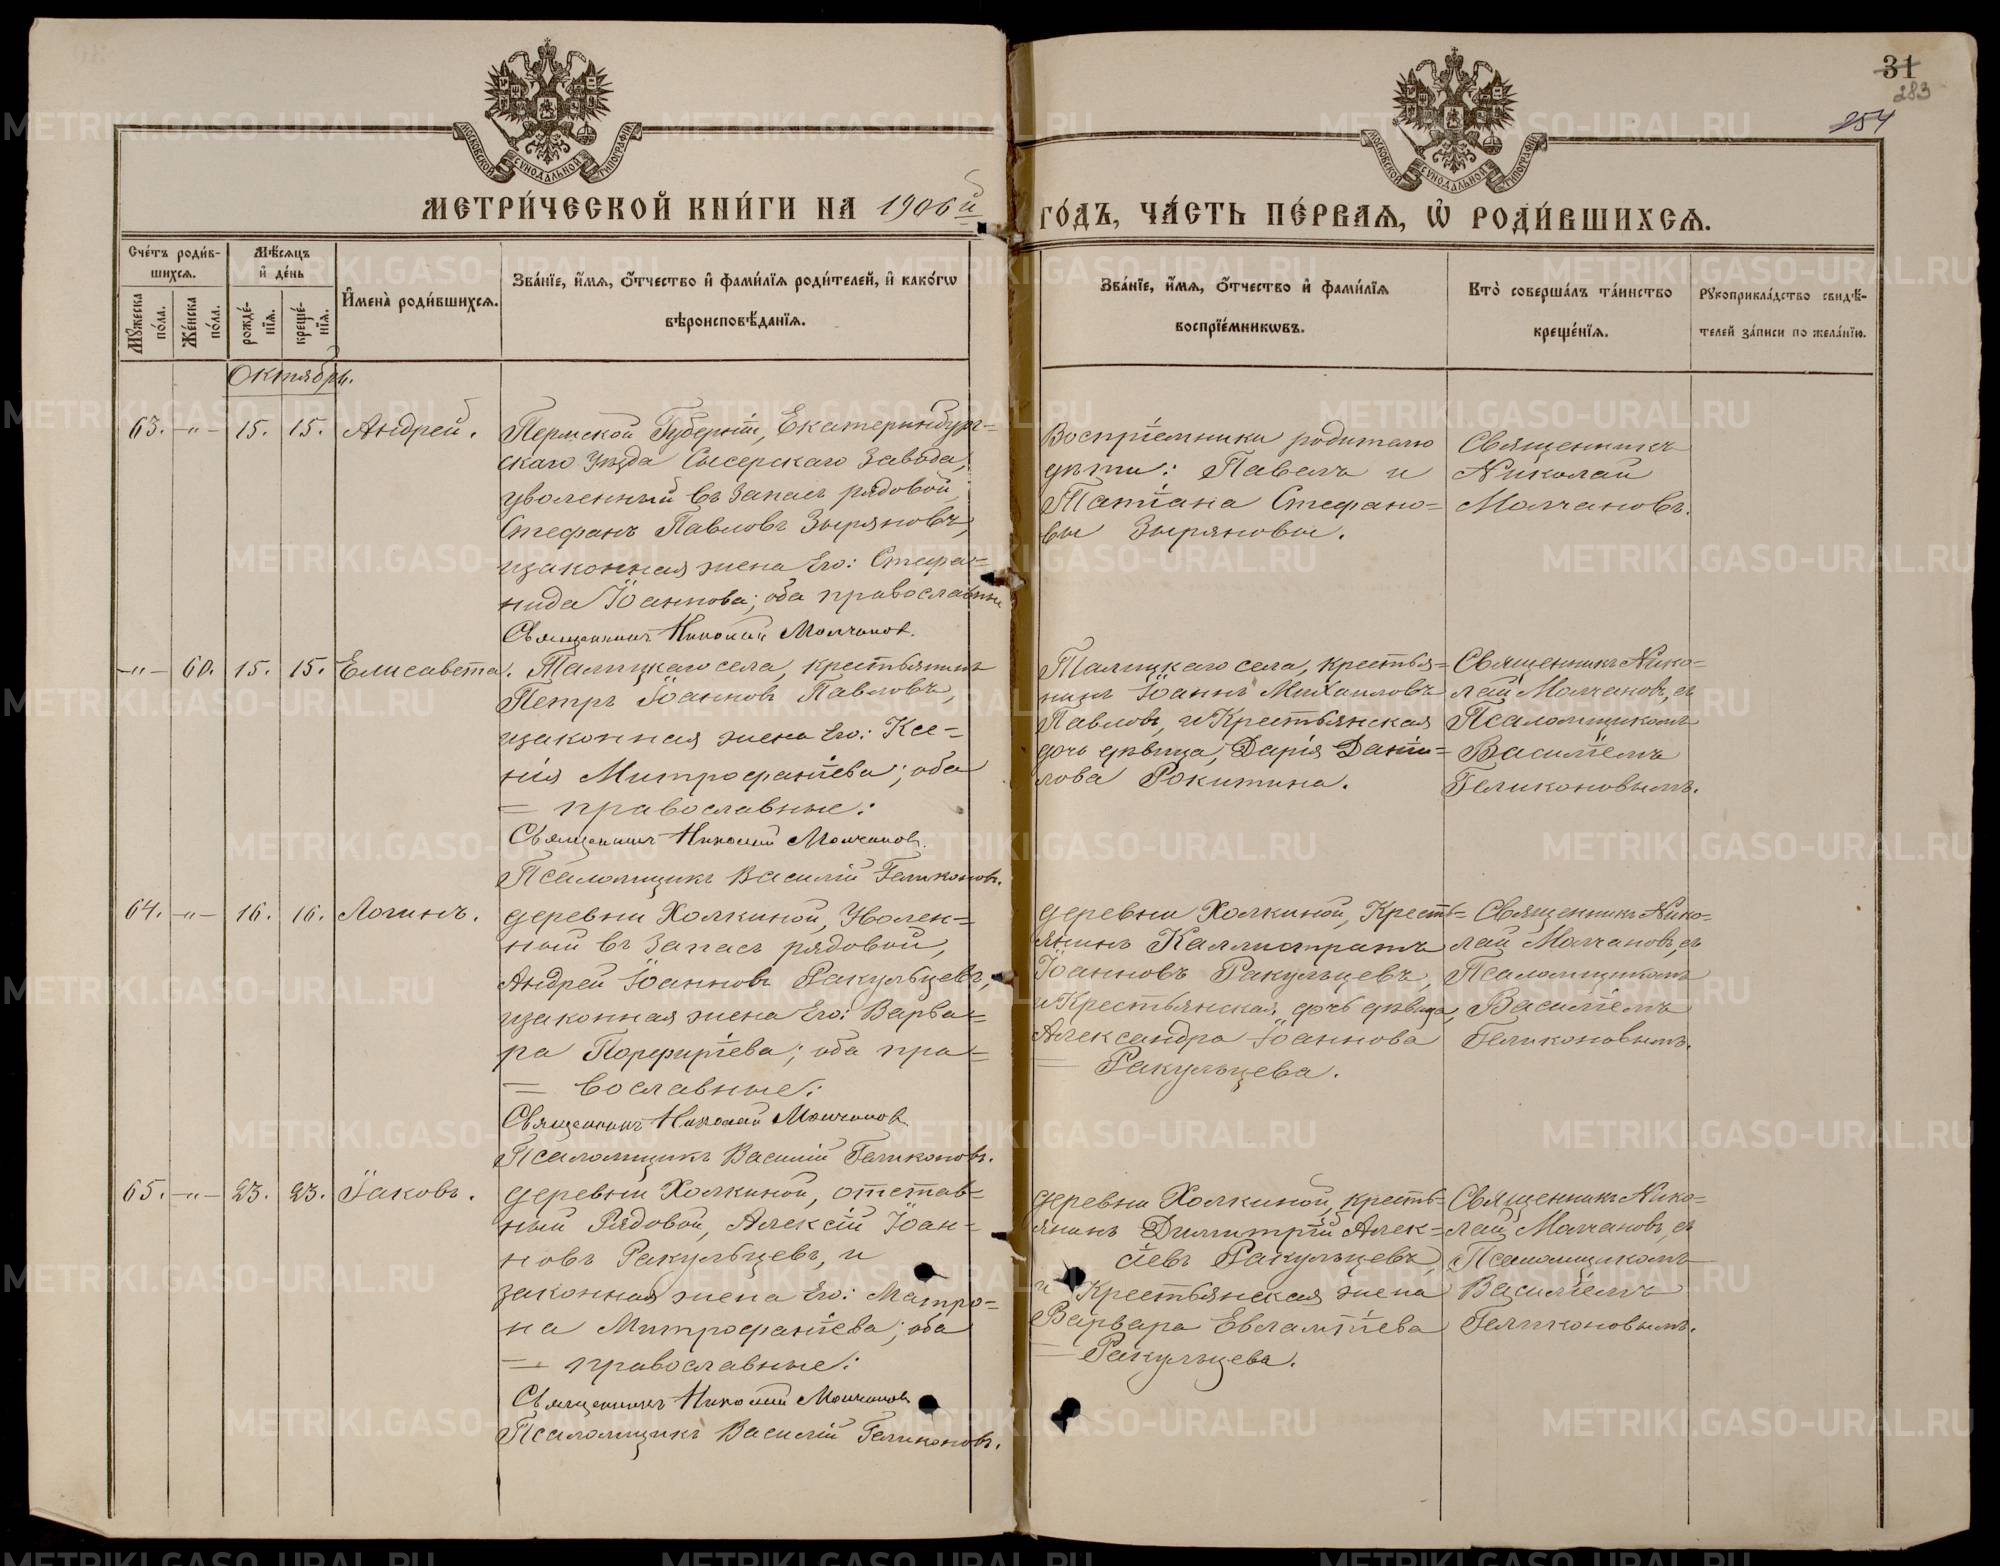 31
283
254
МОСКОВСКОЙ СѴНОДАЛЬНОЙ ТИПОГРАФІИ
МОСКОВСКОЙ СѴНОДАЛЬНОЙ ТИПОГРАФІИ
МЕТРИ́ЧЕСКОЙ КНИ́ГИ НА 1906й
ГО́ДЪ, ЧА́СТЬ ПЕ́РВАЯ, Ѡ РОДИ́ВШИХСЯ.
Сче́тъ роди́в-
шихся.
Мѣ́сяцъ
и де́нь
Мꙋжеска по́ла.
Же́нска по́ла.
рожде́-нїя.
креще́-нїя.
Имена̀ роди́вшихся.
Зва́нїе, и́мя, о́тчество и фами́лїя роди́телей, и како́гѡ
вѣроисповѣ́данїя.
Зва́нїе, и́мя, о́тчество и фами́лїя
воспрїе́мникѡвъ.
Кто̀ соверша́лъ та́инство
креще́нїя.
Рꙋкоприкла́дство свидѣ́-
телей за́писи по жела́нїю.
Октябрь.
63. -"- 15. 15. Андрей.
Пермской Губерніи, Екатеринбург=
скаго Уѣзда Сысерскаго завода,
уволенный въ запасъ рядовой
Стефанъ Павловъ Зыряновъ,
изаконная жена его: Стефа=
нида Іоаннова; оба православные
Священникъ Николай Молчановъ.
Воспріемники родителю
дѣти: Павелъ и
Татіана Стефано=
вы Зыряновы.
Священникъ
Николай
Молчановъ.
-"- 60. 15. 15. Елисавета.
Талицкаго села, крестьянинъ
Петръ Іоанновъ Павловъ,
изаконная жена его: Ксе=
нія Митрофаніева; оба
= православные:
Священникъ Николай Молчановъ.
Псаломщикъ Василій Геликоновъ.
Талицкаго села, крестья=
нинъ Іоаннъ Михаиловъ
Павловъ, и Крестьянская
дочь дѣвица, Дарія Даніи=
лова Рокитина.
Священникъ Нико=
лай Молчановъ, съ
Псаломщикомъ
Василіемъ
Геликоновымъ.
64. -"- 16. 16. Логинъ.
деревни Холкиной, Уволен=
ный въ запасъ рядовой,
Андрей Іоанновъ Ракульцевъ,
изаконная жена его: Варва=
ра Порфиріева; оба пра=
= вославные:
Священникъ Николай Молчановъ
Псаломщикъ Василій Геликоновъ.
деревни Холкиной, Кресть=
янинъ Каллистратъ
Іоанновъ Ракульцевъ,
и Крестьянская дочь дѣвица,
Александра Іоаннова
= Ракульцева.
Священникъ Нико=
лай Молчановъ, съ
Псаломщикомъ
Василіемъ
Геликоновымъ.
65. -"- 23. 23. Іаковъ.
деревни Холкиной, отстав=
ный Рядовой, Алексій Іоан=
новъ Ракульцевъ, и
законная жена его: Матро=
на Митрофаніева; оба
= православные:
Священникъ Николай Молчановъ
Псаломщикъ Василій Геликоновъ.
деревни Холкиной, кресть=
янинъ Димитрій Алек=
сіевъ Ракульцевъ,
и Крестьянская жена
Варвара Евлампіева
= Ракульцева.
Священникъ Нико=
лай Молчановъ, съ
Псаломщикомъ
Василіемъ
Геликоновымъ.
METRIKI.GASO-URAL.RU